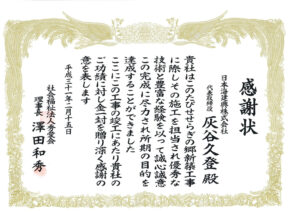 感謝状
日本海建興株式会社
代表取締役
灰谷久登 殿
貴社はこのたびせせらぎの郷新築工事
に際しその施工を担当され優秀な
技術と豊富な経験を以って誠心誠意
この完成に尽力され所期の目的を
達成することができました
ここにこの工事の竣工にあたり貴社の
ご功績に対し金一封を贈り深く感謝の
意を表します
平成三十一年一月十五日
社会福祉法人秀愛会
理事長 澤田和秀